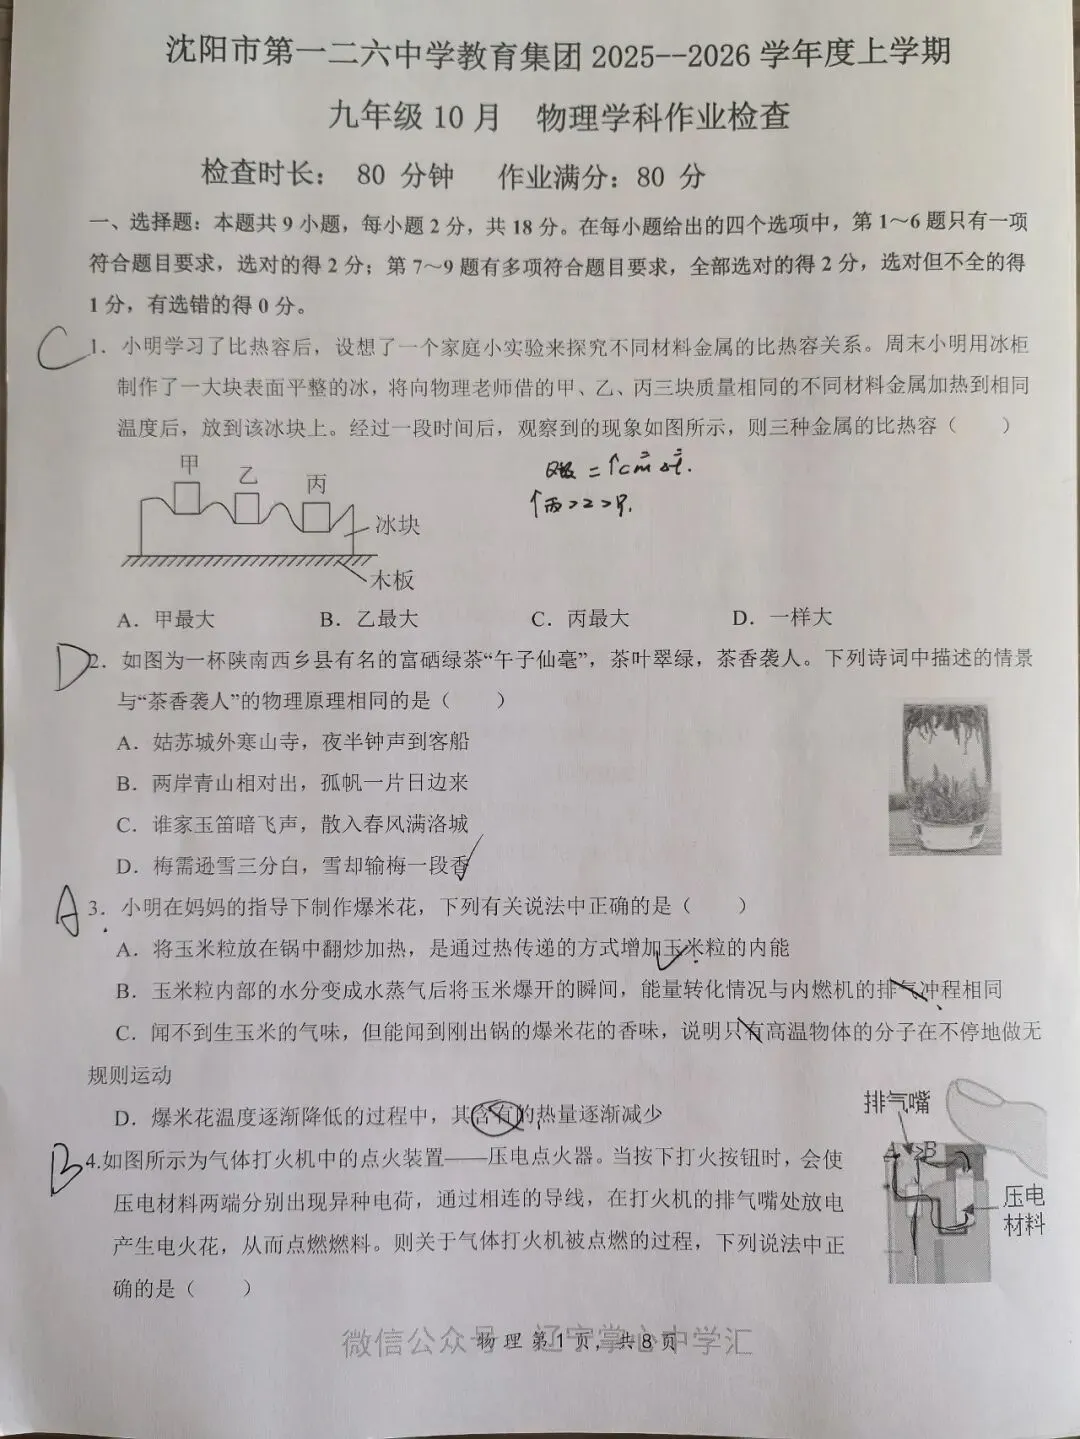 沈阳市第一二六中学教育集团 2025--2026 学年度上学期
九年级 10 月 物理学科作业检查
检查时长： 80 分钟 作业满分：80 分
一、选择题：本题共 9 小题，每小题 2 分，共 18 分。在每小题给出的四个选项中，第 1～6 题只有一项
符合题目要求，选对的得 2 分；第 7～9 题有多项符合题目要求，全部选对的得 2 分，选对但不全的得
1 分，有选错的得 0 分。
C 1．小明学习了比热容后，设想了一个家庭小实验来探究不同材料金属的比热容关系。周末小明用冰柜
制作了一大块表面平整的冰，将向物理老师借的甲、乙、丙三块质量相同的不同材料金属加热到相同
温度后，放到该冰块上。经过一段时间后，观察到的现象如图所示，则三种金属的比热容（ ）
甲
乙
丙
冰块
木板
A．甲最大 B．乙最大 C．丙最大 D．一样大
D 2．如图为一杯陕南西乡县有名的富硒绿茶“午子仙毫”，茶叶翠绿，茶香袭人。下列诗词中描述的情景
与“茶香袭人”的物理原理相同的是（ ）
A．姑苏城外寒山寺，夜半钟声到客船
B．两岸青山相对出，孤帆一片日边来
C．谁家玉笛暗飞声，散入春风满洛城
D．梅需逊雪三分白，雪却输梅一段香
A 3．小明在妈妈的指导下制作爆米花，下列有关说法中正确的是（ ）
A．将玉米粒放在锅中翻炒加热，是通过热传递的方式增加玉米粒的内能
B．玉米粒内部的水分变成水蒸气后将玉米爆开的瞬间，能量转化情况与内燃机的排气冲程相同
C．闻不到生玉米的气味，但能闻到刚出锅的爆米花的香味，说明只有高温物体的分子在不停地做无
规则运动
D．爆米花温度逐渐降低的过程中，其含有的热量逐渐减少
排气嘴
A B
压电
材料
B 4.如图所示为气体打火机中的点火装置——压电点火器。当按下打火按钮时，会使
压电材料两端分别出现异种电荷，通过相连的导线，在打火机的排气嘴处放电
产生电火花，从而点燃燃料。则关于气体打火机被点燃的过程，下列说法中正
确的是（ ）
物理 第 1 页，共 8 页
微信公众号 辽宁掌心中学汇